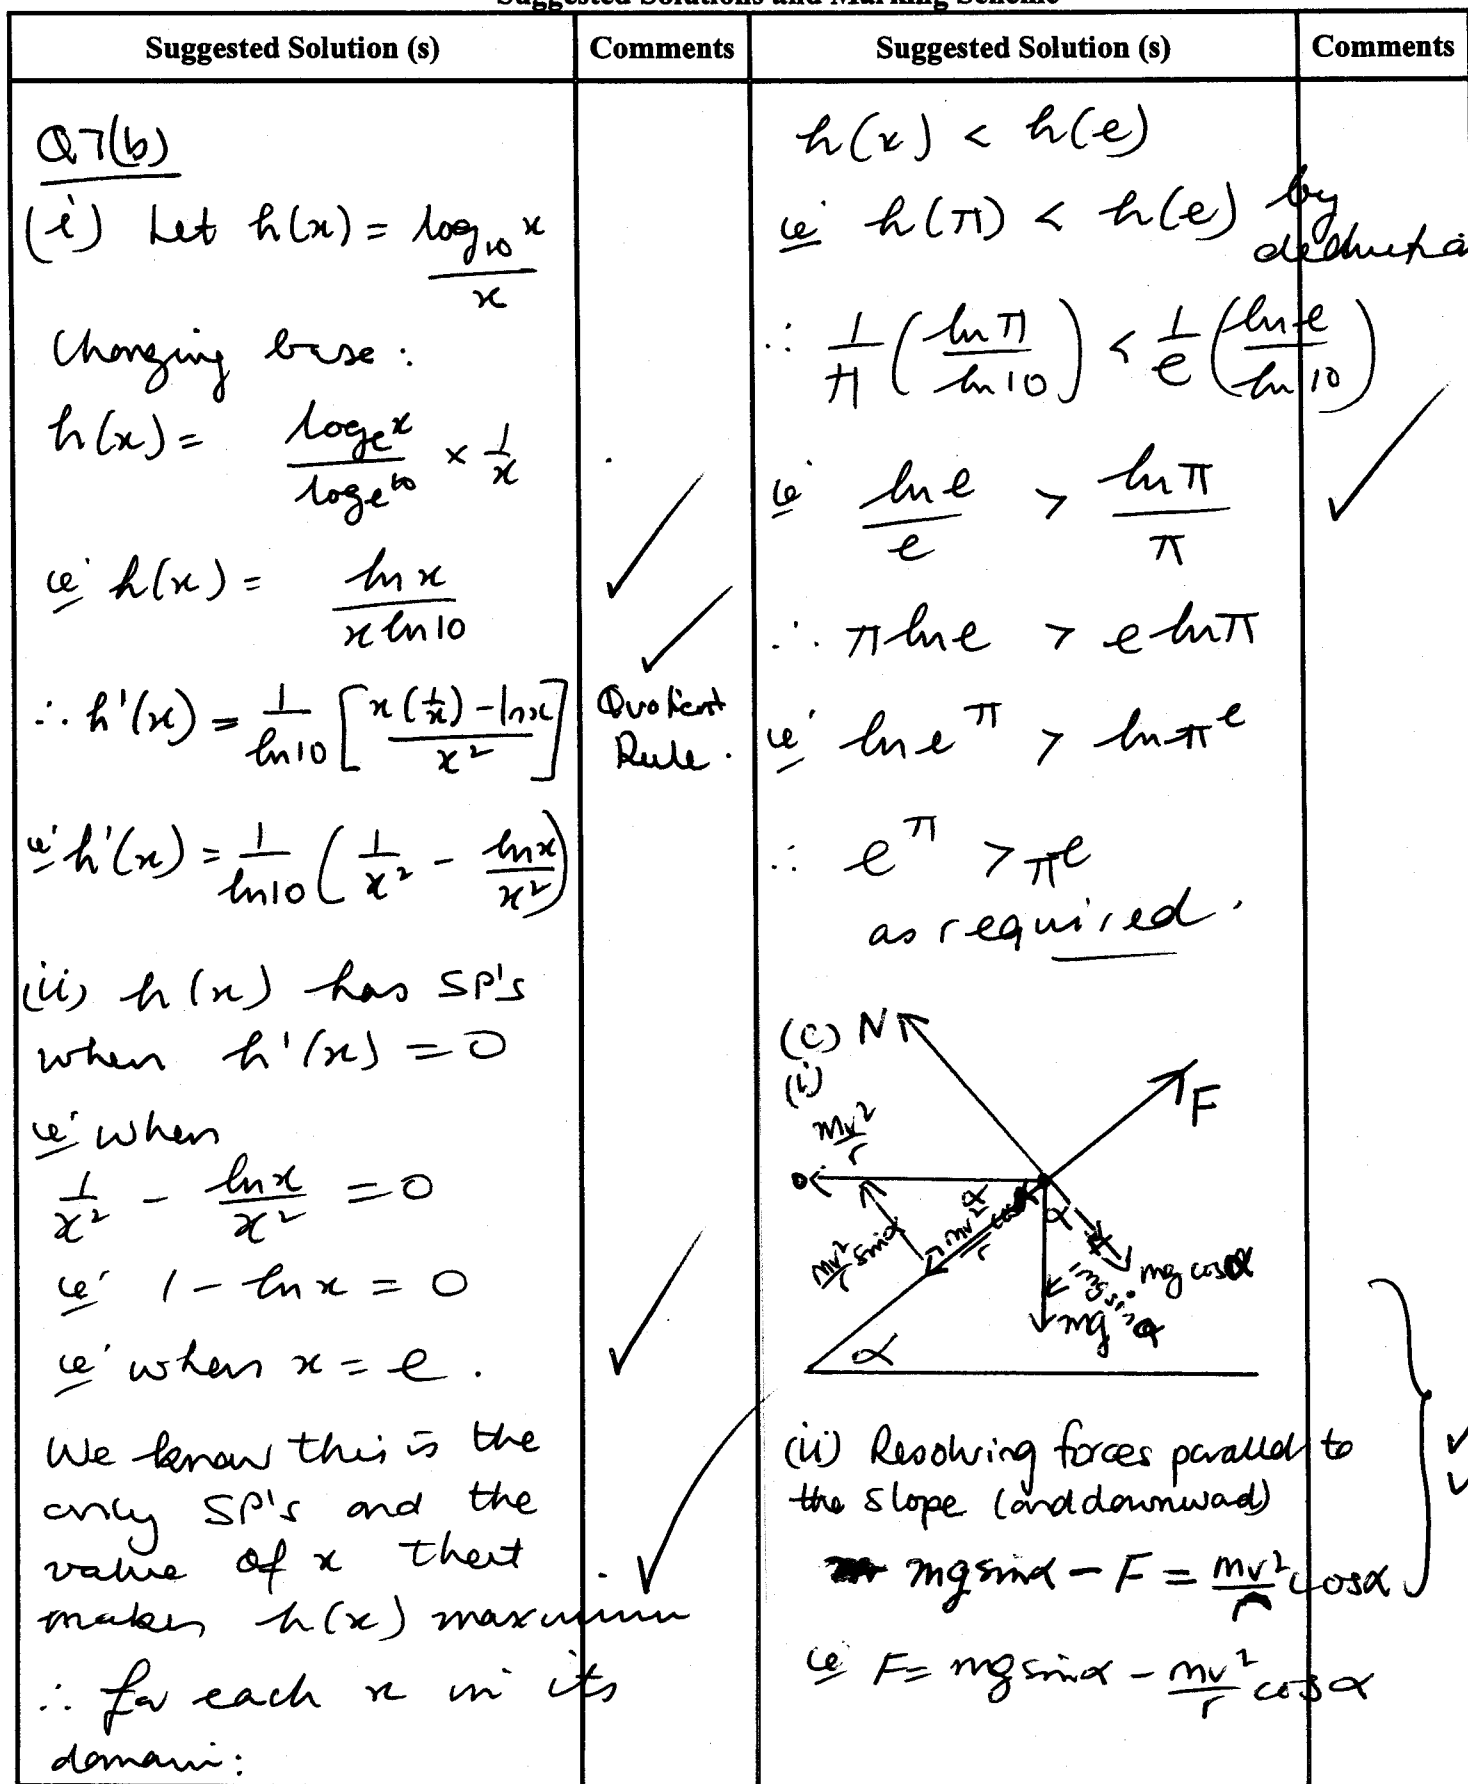 Suggested Solutions and Marking Scheme
Suggested Solution (s)
Comments
Q7(b)
(i) Let h(x) = log₁₀ x / x
Changing base:
h(x) = logₑ x / logₑ 10 × 1/x
ie h(x) = ln x / x ln 10 ✓
∴ h'(x) = 1/ln10 [ (x(1/x) - ln x) / x² ] ✓ Quotient
Rule.
ie h'(x) = 1/ln10 ( 1/x² - ln x / x² )
(ii) h(x) has SP's
when h'(x) = 0
ie when
1/x² - ln x / x² = 0
ie 1 - ln x = 0
ie when x = e. ✓
We know this is the
only SP's and the
value of x that
makes h(x) maximum ✓
∴ for each x in its
domain:
Suggested Solution (s)
Comments
h(x) < h(e)
ie h(π) < h(e) by
∴ 1/π ( ln π / ln 10 ) < 1/e ( ln e / ln 10 )
ie ln e / e > ln π / π ✓
∴ π ln e > e ln π
ie ln e^π > ln π^e
∴ e^π > π^e
as required.
(c) N
(i)
F
mv²/r
α
mv²/r sin α
mv²/r cos α
α
mg cos α
mg sin α
mg
α
(ii) Resolving forces parallel to
the slope (and downward)
mg sin α - F = mv²/r cos α ✓ ✓
ie F = mg sin α - mv²/r cos α